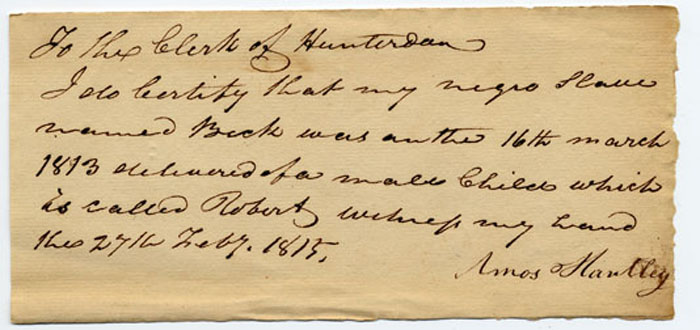 To the Clerk of Hunterdon
I do Certify that my negro Slave
named Beck was on the 16th march
1813 delivered of a male Child which
is called Robert witness my hand
the 27th Feby. 1815.
Amos Hartley